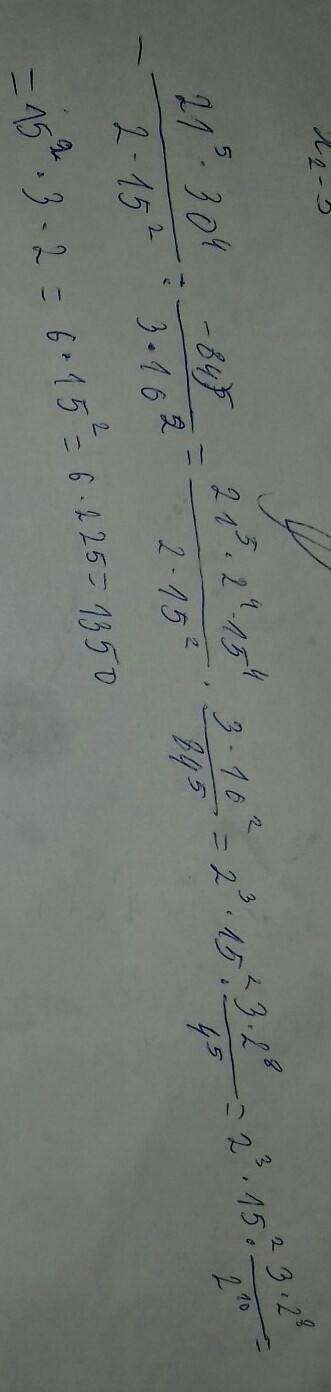 - \frac{21^5 \cdot 30^4}{2 \cdot 15^2} : \frac{-84^5}{3 \cdot 16^2} = \frac{21^5 \cdot 2^4 \cdot 15^4}{2 \cdot 15^2} \cdot \frac{3 \cdot 16^2}{84^5} = 2^3 \cdot 15^2 \cdot \frac{3 \cdot 2^8}{4^5} = 2^3 \cdot 15^2 \cdot \frac{3 \cdot 2^8}{2^{10}} =
= 15^2 \cdot 3 \cdot 2 = 6 \cdot 15^2 = 6 \cdot 225 = 1350